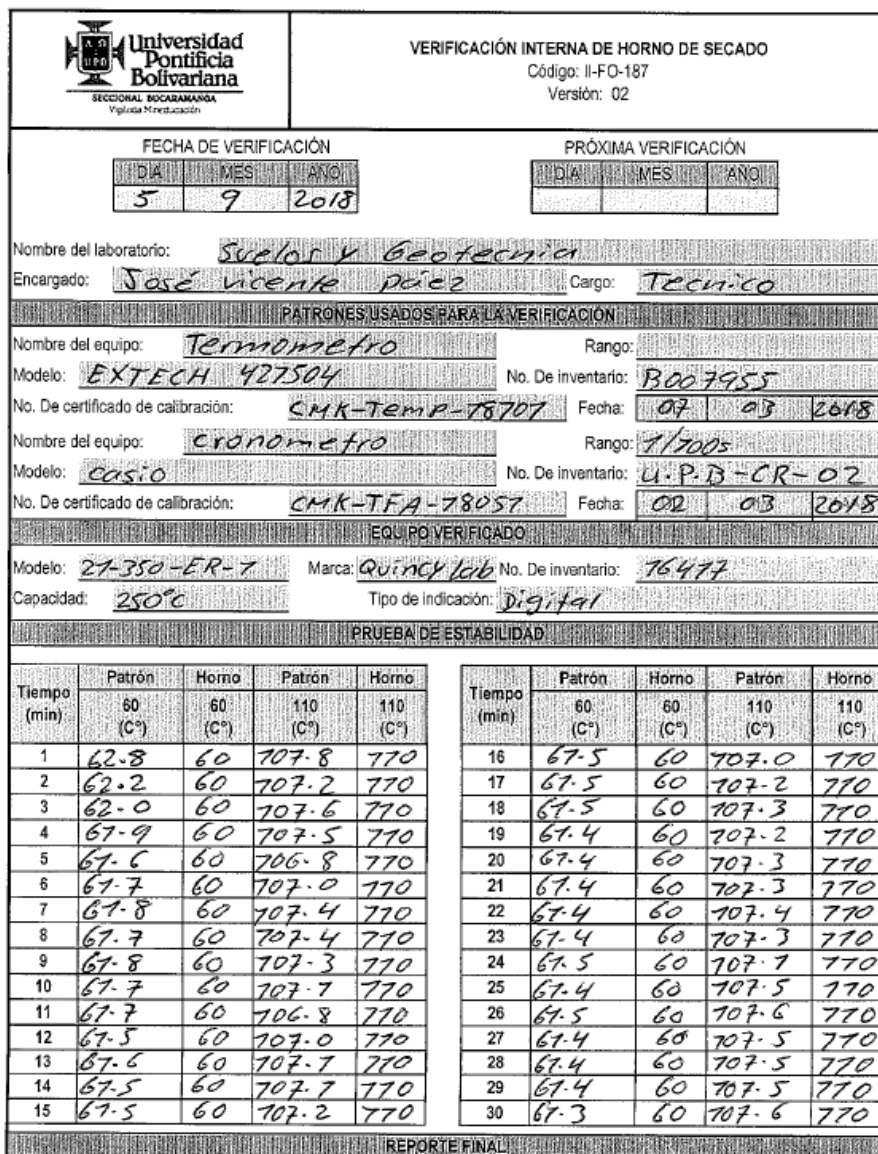 Universidad
Pontificia
Bolivariana
SECCIONAL BUCARAMANGA
Vigilada Mineducación
VERIFICACIÓN INTERNA DE HORNO DE SECADO
Código: II-FO-187
Versión: 02
FECHA DE VERIFICACIÓN PRÓXIMA VERIFICACIÓN
DIA MES AÑO DIA MES AÑO
5 9 2018
Nombre del laboratorio: Suelos y Geotecnia
Encargado: José vicente páez Cargo: Tecnico
PATRONES USADOS PARA LA VERIFICACIÓN
Nombre del equipo: Termometro Rango:
Modelo: EXTECH 421504 No. De inventario: B007955
No. De certificado de calibración: CMK-TemP-18701 Fecha: 07 03 2018
Nombre del equipo: cronometro Rango: 1/100s
Modelo: casio No. De inventario: U.P.B-CR-02
No. De certificado de calibración: CMK-TFA-18051 Fecha: 02 03 2018
EQUIPO VERIFICADO
Modelo: 21-350-ER-1 Marca: Quincy lab No. De inventario: 16417
Capacidad: 250°c Tipo de indicación: Digital
PRUEBA DE ESTABILIDAD
Tiempo (min) Patrón 60 (C°) Horno 60 (C°) Patrón 110 (C°) Horno 110 (C°) Tiempo (min) Patrón 60 (C°) Horno 60 (C°) Patrón 110 (C°) Horno 110 (C°)
1 62.8 60 107.8 110 16 61.5 60 107.0 110
2 62.2 60 107.2 110 17 61.5 60 107.2 110
3 62.0 60 107.6 110 18 61.5 60 107.3 110
4 61.9 60 107.5 110 19 61.4 60 107.2 110
5 61.6 60 106.8 110 20 61.4 60 107.3 110
6 61.7 60 107.0 110 21 61.4 60 107.3 110
7 61.8 60 107.4 110 22 61.4 60 107.4 110
8 61.7 60 107.4 110 23 61.4 60 107.3 110
9 61.8 60 107.3 110 24 61.5 60 107.1 110
10 61.7 60 107.1 110 25 61.4 60 107.5 110
11 61.7 60 106.8 110 26 61.5 60 107.6 110
12 61.5 60 107.0 110 27 61.4 60 107.5 110
13 61.6 60 107.1 110 28 61.4 60 107.5 110
14 61.5 60 107.1 110 29 61.4 60 107.5 110
15 61.5 60 107.2 110 30 61.3 60 107.6 110
REPORTE FINAL